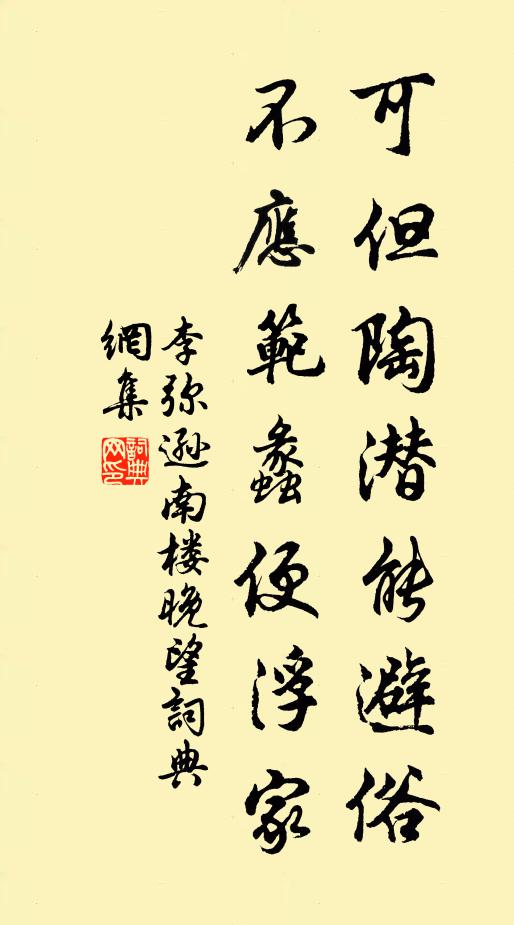 可但陶潜能避俗
不應範蠡便浮家
李弥遜南楼晚望詞典
網集
詞典網印